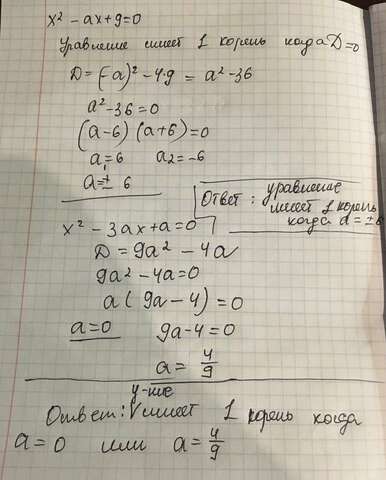 x² - ax + 9 = 0
Уравнение имеет 1 корень когда D = 0
D = (-a)² - 4·9 = a² - 36
a² - 36 = 0
(a - 6) (a + 6) = 0
a₁ = 6 a₂ = -6
a = ± 6
Ответ: уравнение
имеет 1 корень
когда a = ± 6
x² - 3ax + a = 0
D = 9a² - 4a
9a² - 4a = 0
a (9a - 4) = 0
a = 0 9a - 4 = 0
a = 4/9
у-ние
Ответ: имеет 1 корень когда
a = 0 или a = 4/9